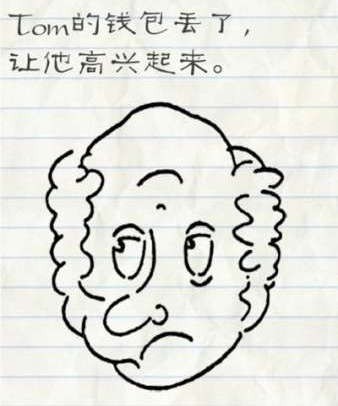 Tom的钱包丢了，
让他高兴起来。